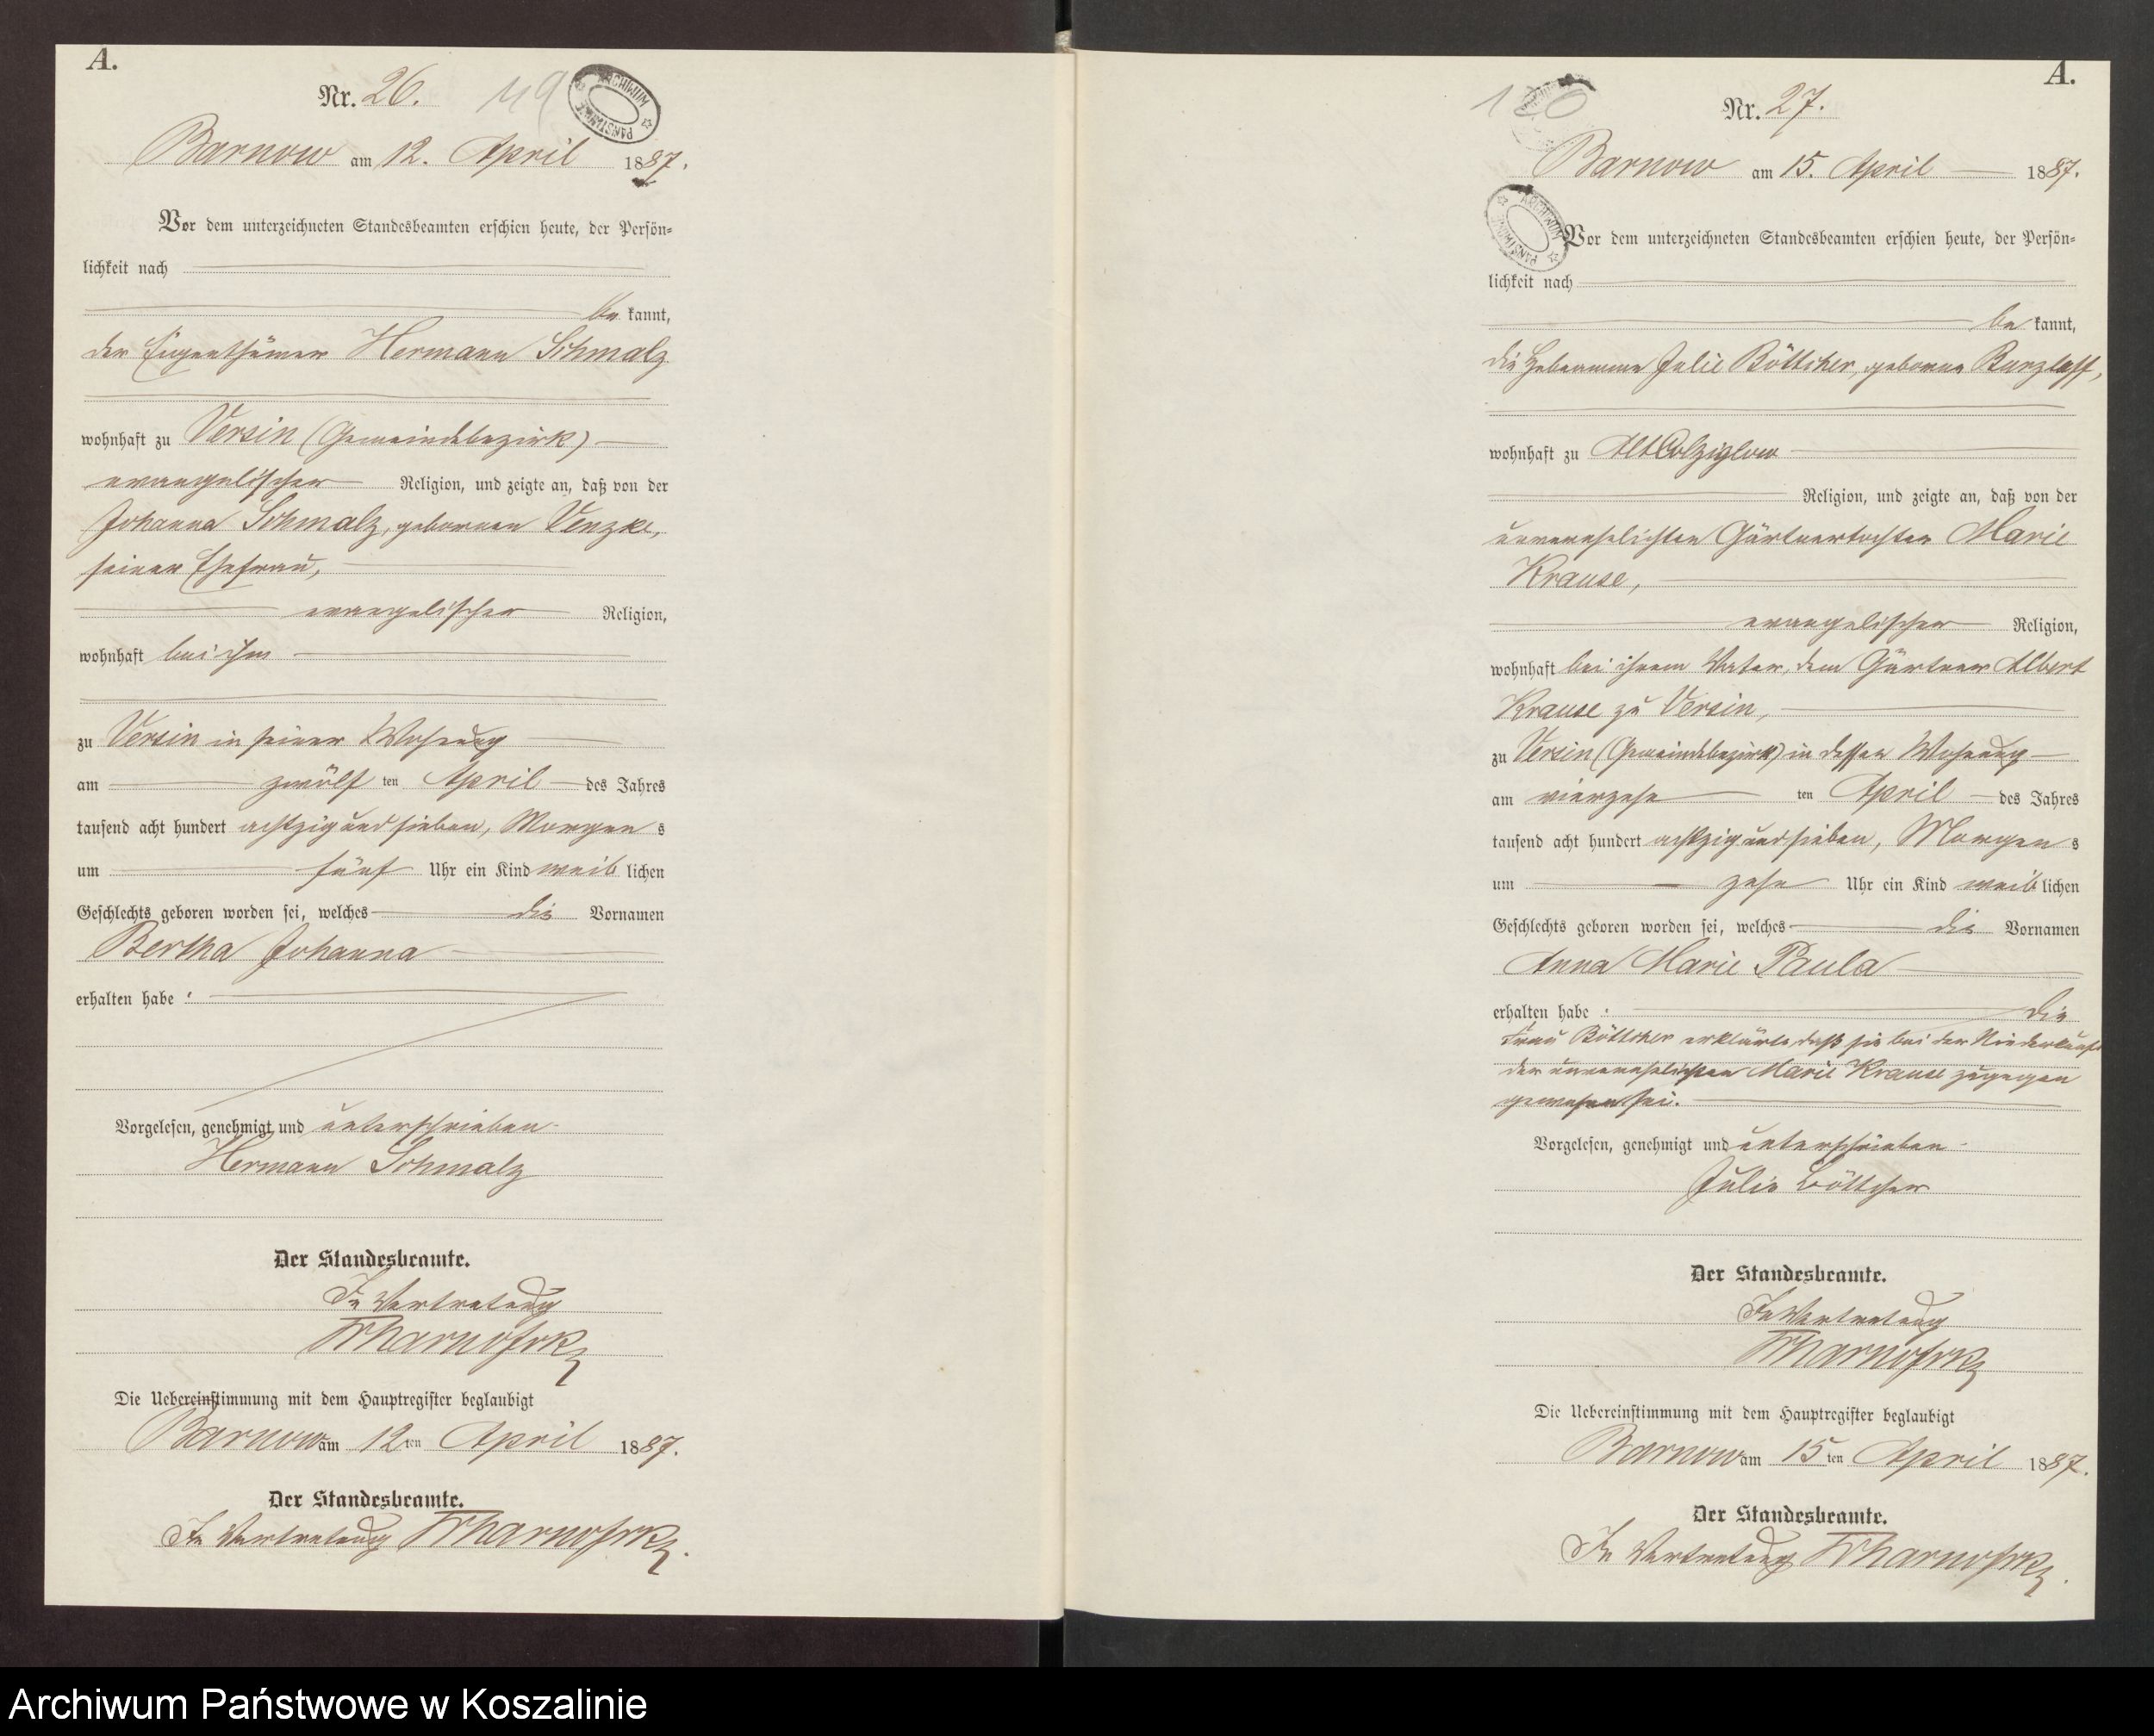 A.
Nr. 26.
119
ARCHIWUM PAŃSTWOWE
Barnow am 12. April 1887.
Vor dem unterzeichneten Standesbeamten erschien heute, der Persön-
lichkeit nach
be kannt,
der Eigenthümer Hermann Schmalz
wohnhaft zu Versin (Gemeindebezirk)
evangelischer Religion, und zeigte an, daß von der
Johanna Schmalz, geborenen Venzke,
seiner Ehefrau,
evangelischer Religion,
wohnhaft bei ihm
zu Versin in seiner Wohnung
am zwölf ten April des Jahres
tausend acht hundert achtzig und sieben, Morgen s
um fünf Uhr ein Kind weib lichen
Geschlechts geboren worden sei, welches die Vornamen
Bertha Johanna
erhalten habe.
Vorgelesen, genehmigt und unterschrieben
Hermann Schmalz
Der Standesbeamte.
In Vertretung
Die Uebereinstimmung mit dem Hauptregister beglaubigt
Barnow am 12 ten April 1887.
Der Standesbeamte.
In Vertretung
A.
Nr. 27.
120
Barnow am 15. April 1887.
ARCHIWUM PAŃSTWOWE
Vor dem unterzeichneten Standesbeamten erschien heute, der Persön-
lichkeit nach
be kannt,
die Hebeamme Julie Böttcher, geborene Barzlaff,
wohnhaft zu Alt Colziglow
Religion, und zeigte an, daß von der
unverehelichten Gärtnertochter Marie
Krause,
evangelischer Religion,
wohnhaft bei ihrem Vater, dem Gärtner Albert
Krause zu Versin,
zu Versin (Gemeindebezirk) in dessen Wohnung
am vierzehn ten April des Jahres
tausend acht hundert achtzig und sieben, Morgen s
um zehn Uhr ein Kind weib lichen
Geschlechts geboren worden sei, welches die Vornamen
Anna Marie Paula
erhalten habe. Die
Frau Böttcher erklärte daß sie bei der Niederkunft
der unverehelichten Marie Krause zugegen
gewesen sei.
Vorgelesen, genehmigt und unterschrieben
Julie Böttcher
Der Standesbeamte.
In Vertretung
Die Uebereinstimmung mit dem Hauptregister beglaubigt
Barnow am 15 ten April 1887.
Der Standesbeamte.
In Vertretung
Archiwum Państwowe w Koszalinie